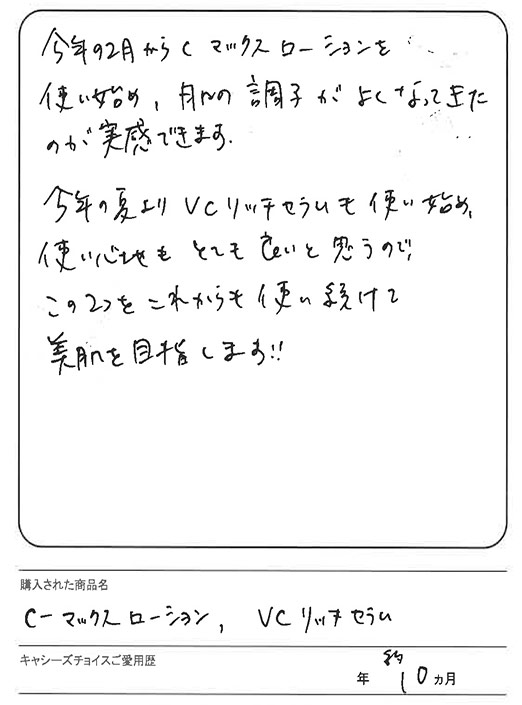 今年の2月からC マックスローションを
使い始め、肌の調子がよくなってきた
のが実感できます.
今年の夏よりVCリッチセラムも使い始め、
使い心地もとても良いと思うので、
この2つをこれからも使い続けて
美肌を目指します!!
購入された商品名
C-マックスローション, VCリッチセラム
キャシーズチョイスご愛用歴
年 約10ヵ月